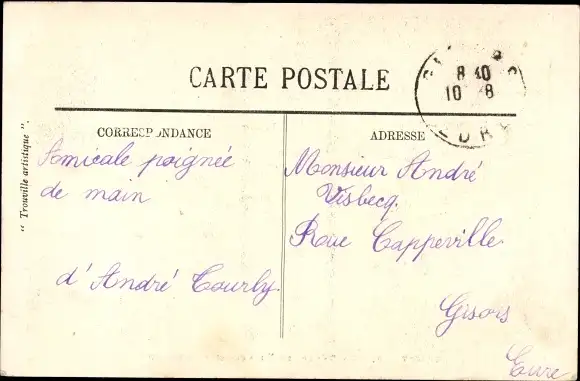 CARTE POSTALE
8 40
10 8
CORRESPONDANCE
ADRESSE
" Trouville artistique ".
Amicale poignée
de main
d'André Courly.
Monsieur André
Visbecq.
Roue Cappeville
Gisors
Eure